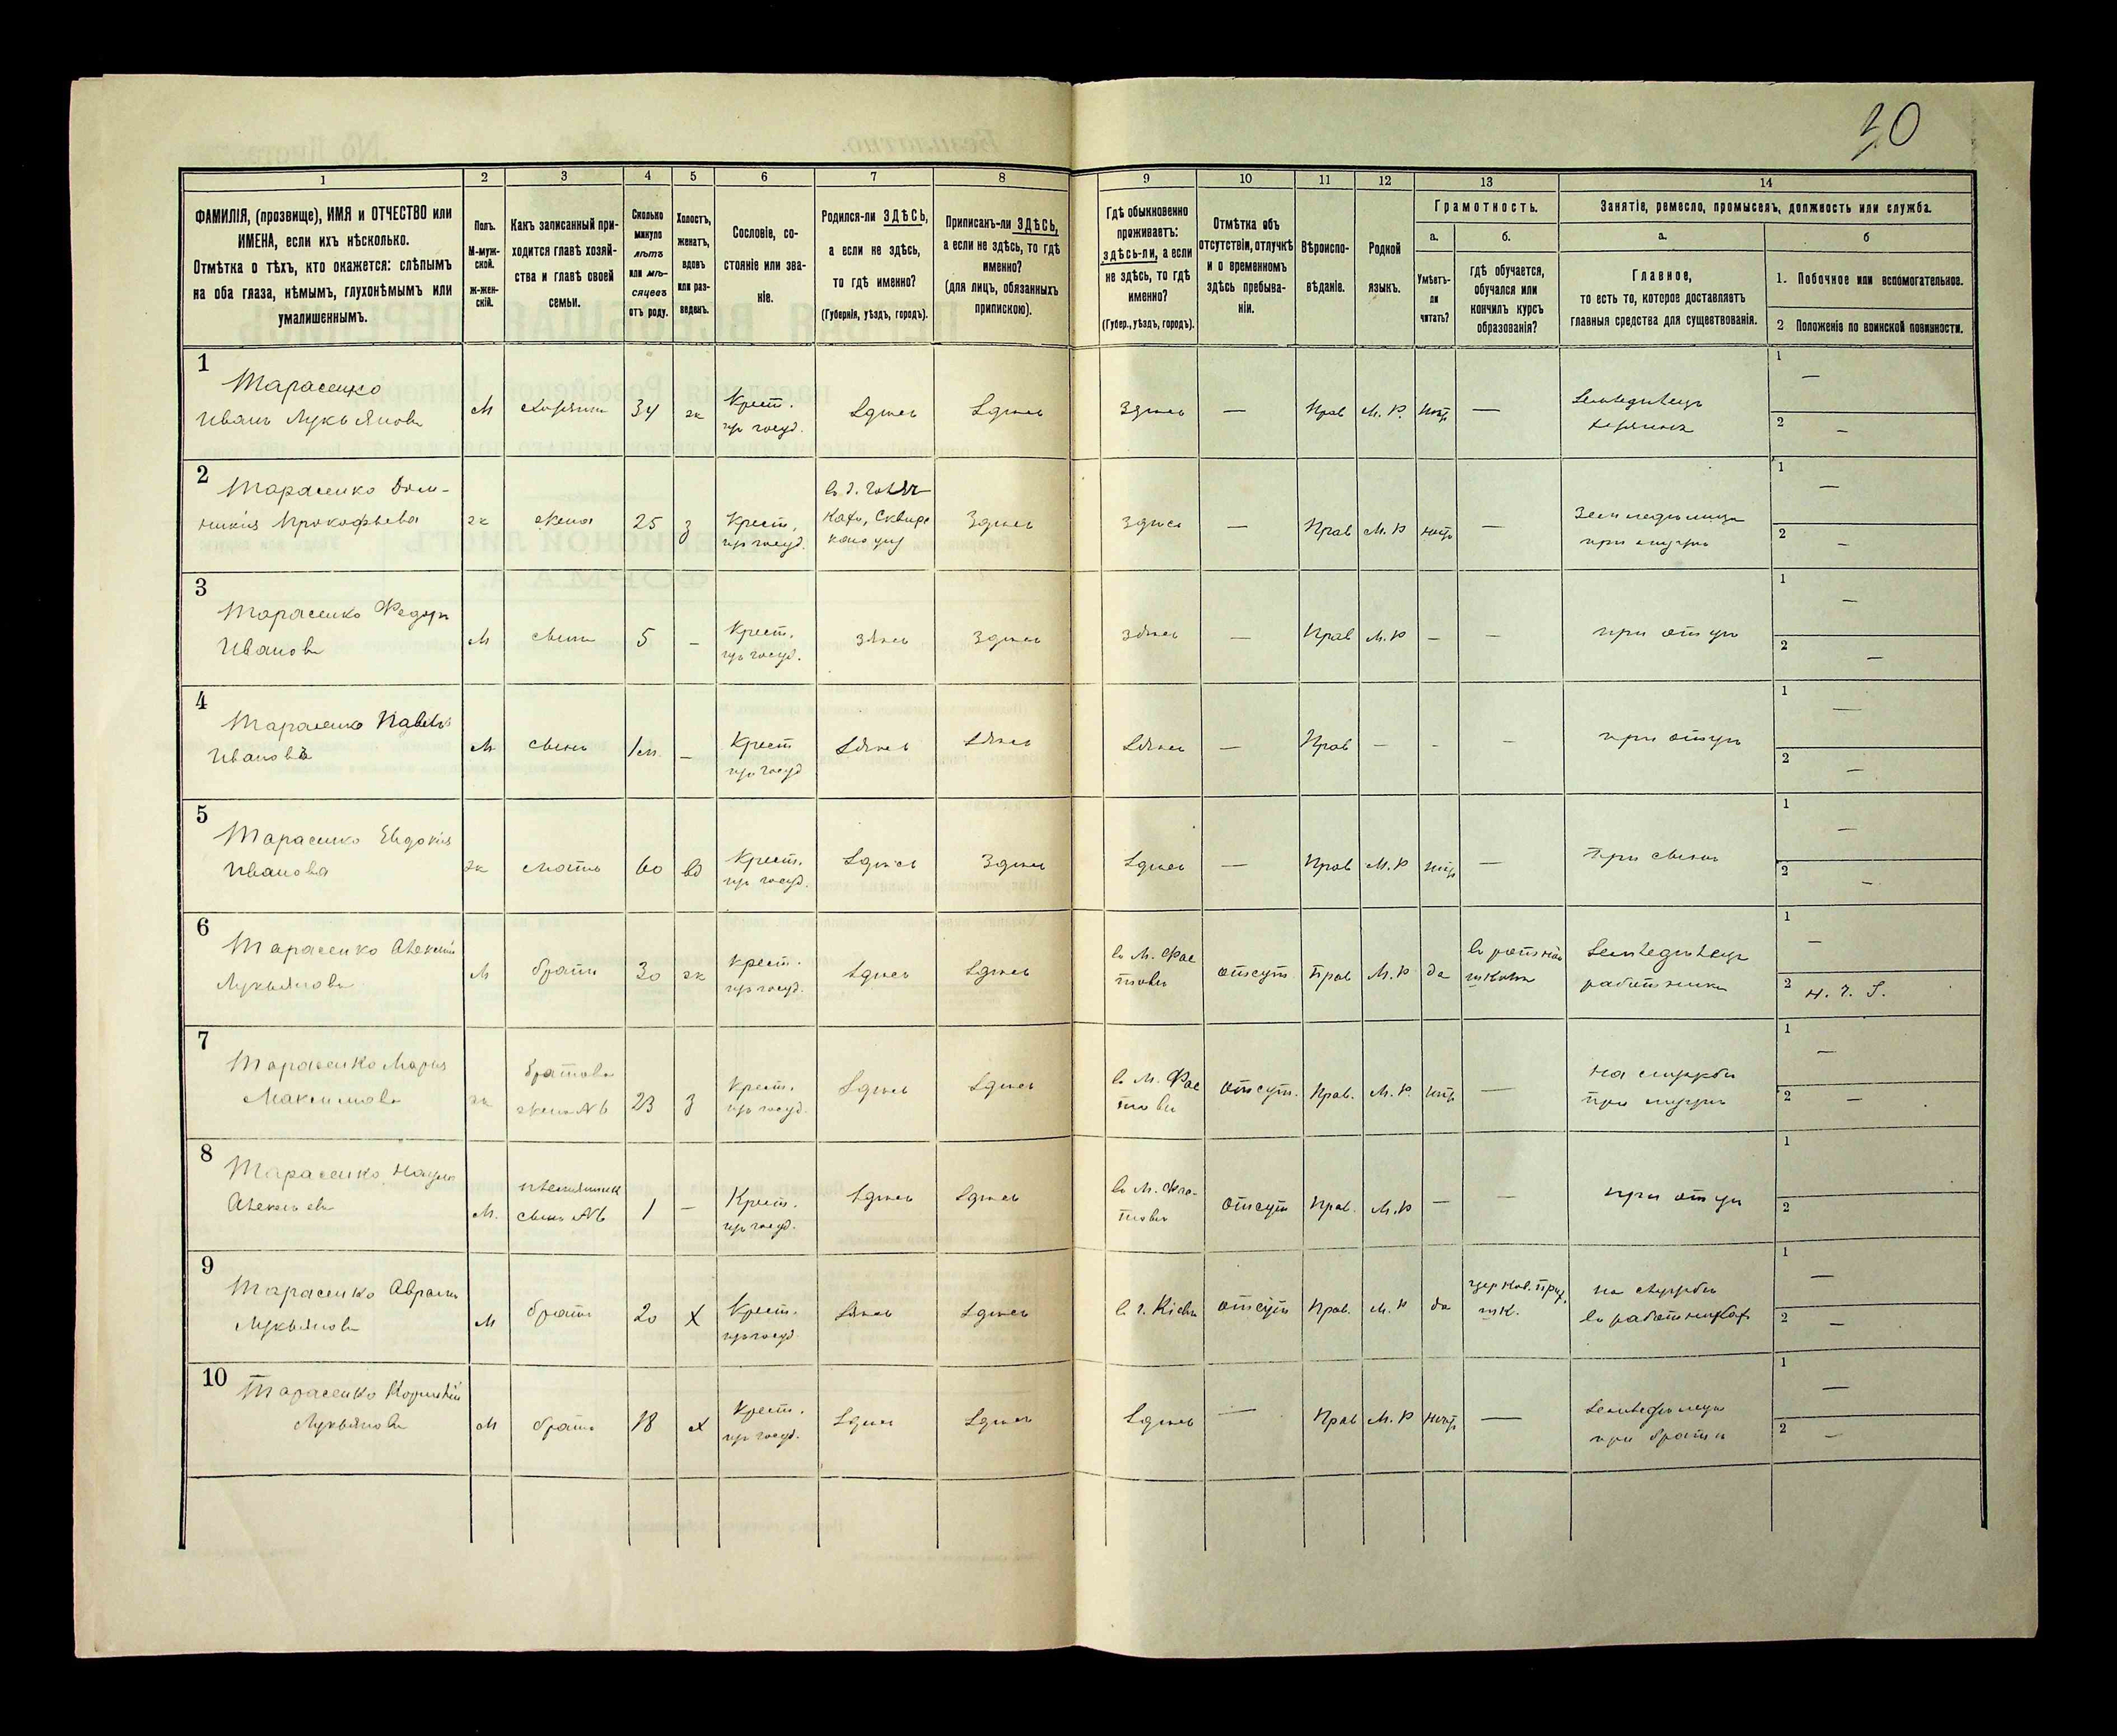 30
1 2 3 4 5 6 7 8 9 10 11 12 13 14
ФАМИЛІЯ, (прозвище), ИМЯ и ОТЧЕСТВО или
ИМЕНА, если ихъ нѣсколько.
Отмѣтка о тѣхъ, кто окажется: слѣпымъ
на оба глаза, нѣмымъ, глухонѣмымъ или
умалишеннымъ.
Полъ.
М-муж-
ской.
Ж-жен-
скій.
Какъ записанный при-
ходится главѣ хозяй-
ства и главѣ своей
семьи.
Сколько
минуло
лѣтъ
или мѣ-
сяцевъ
отъ роду.
Холостъ,
женатъ,
вдовъ
или раз-
веденъ.
Сословіе, со-
стояніе или зва-
ніе.
Родился-ли ЗДѢСЬ,
а если не здѣсь,
то гдѣ именно?
(Губернія, уѣздъ, городъ).
Приписанъ-ли ЗДѢСЬ,
а если не здѣсь, то гдѣ
именно?
(для лицъ, обязанныхъ
припискою).
Гдѣ обыкновенно
проживаетъ:
здѣсь-ли, а если
не здѣсь, то гдѣ
именно?
(Губер., уѣздъ, городъ).
Отмѣтка объ
отсутствіи, отлучкѣ
и о временномъ
здѣсь пребыва-
ніи.
Вѣроиспо-
вѣданіе.
Родной
языкъ.
Грамотность.
а.
Умѣетъ-
ли
читать?
б.
гдѣ обучается,
обучался или
кончилъ курсъ
образованія?
Занятіе, ремесло, промыселъ, должность или служба.
а.
Главное,
то есть то, которое доставляетъ
главныя средства для существованія.
б
1. Побочное или вспомогательное.
2 Положеніе по воинской повинности.
1
Тарасенко
Иванъ Лукьяновъ
М
хозяинъ
34
ж
Крест.
изъ госуд.
Здѣсь
Здѣсь
Здѣсь
—
Прав
М. Р.
нѣтъ
—
Земледѣлецъ
хозяинъ
1
—
2
—
2
Тарасенко Дом-
никія Прокофьева
ж
жена
25
з
Крест.
изъ госуд.
Сквирс
Здѣсь
Здѣсь
—
Прав
М. Р
нѣтъ
—
Земледѣлица
при мужѣ
1
—
2
—
3
Тарасенко Федоръ
Ивановъ
М
сынъ
5
–
Крест.
изъ госуд.
здѣсь
Здѣсь
здѣсь
—
Прав
М. Р
–
–
при отцѣ
1
—
2
—
4
Тарасенко Павелъ
Ивановъ
М
сынъ
1 м.
–
Крест
изъ госуд
Здѣсь
Здѣсь
Здѣсь
—
Прав
–
-
–
при отцѣ
1
—
2
—
5
Тарасенко Евдокія
Иванова
ж
мать
60
вд
Крест.
изъ госуд.
Здѣсь
Здѣсь
Здѣсь
—
Прав
М. Р
нѣтъ
—
При сынѣ
1
—
2
—
6
Тарасенко Алексѣй
Лукьяновъ
М
братъ
30
ж
крест.
изъ госуд.
Здѣсь
Здѣсь
въ М. Фас
товѣ
отсут.
Прав
М. Р
да
въ
школѣ
Земледѣлецъ
работникъ
1
—
2 н. ч. З.
7
Тарасенко Марья
Максимова
ж
братова
жена №6
23
з
Крест.
изъ госуд.
Здѣсь
Здѣсь
въ М. Фас
товѣ
отсут.
Прав.
М. Р.
нѣтъ
—
на службѣ
при мужѣ
1
—
2
—
8
Тарасенко Наумъ
Алексѣевъ
М.
племянникъ
сынъ №6
1
–
Крест.
изъ госуд.
Здѣсь
Здѣсь
въ М. Фас-
товѣ
отсут
Прав.
М. Р
—
–
при отцѣ
1
2
9
Тарасенко Аврамъ
Лукьяновъ
М
братъ
20
Х
Крест.
изъ госуд.
Здѣсь
Здѣсь
въ г. Кіевѣ
отсут
Прав.
М. Р
да
церков. прих.
шк.
на службѣ
въ работникахъ
1
—
2
—
10
Тарасенко Корнилій
Лукьяновъ
М
братъ
18
х
Крест.
изъ госуд.
Здѣсь
Здѣсь
Здѣсь
—
Прав
М. Р
нѣтъ
—
Земледѣлецъ
при братѣ
1
—
2
—